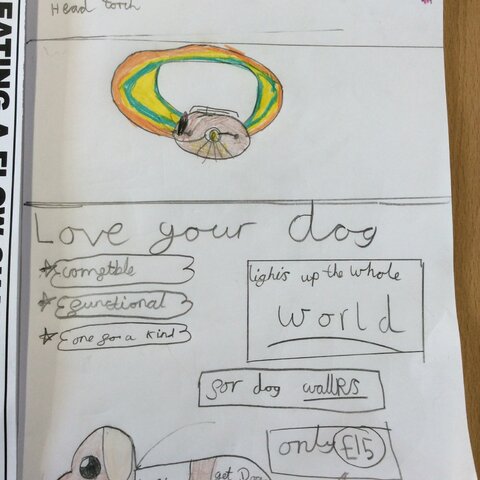 Head torch
Love your dog
comfetble
functional
one for a kind
lights up the whole
world
for dog wallks
only £15
get Dog
EATING A FLOW